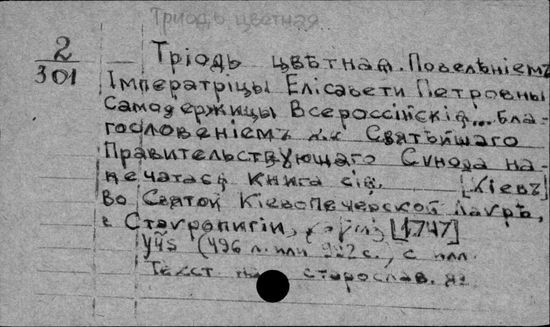 Триодь цветная
2
301
— Тріодь цвѣтная. Повелѣніемъ
Імператріцы Елісавети Петровны
Самодержицы Всероссійскія... Бла-
гословеніемъ же Святѣйшаго
Правительствующаго Сѵнода на-
печатася книга сія, [Кіевъ]
во Святой Кіевопечерской Лаврѣ,
в Ставропигіи, [1747]
(496 л. или 992 с., с илл.
Текст на старослав. яз.